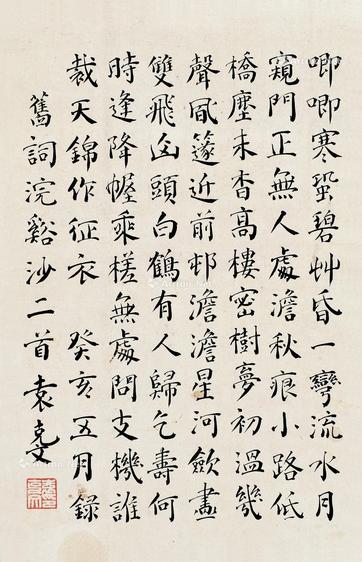 唧唧寒蛩碧艸昏一彎流水月
窺門正無人處澹秋痕小路低
橋塵未杳高樓密樹夢初溫幾
聲風籧近前邨澹澹星河斂畫
雙飛凼頭白鶴有人歸乞壽何
時逢降幄乘槎無處問支機誰
裁天錦作征衣 癸亥五月録
舊詞浣谿沙二首袁克文